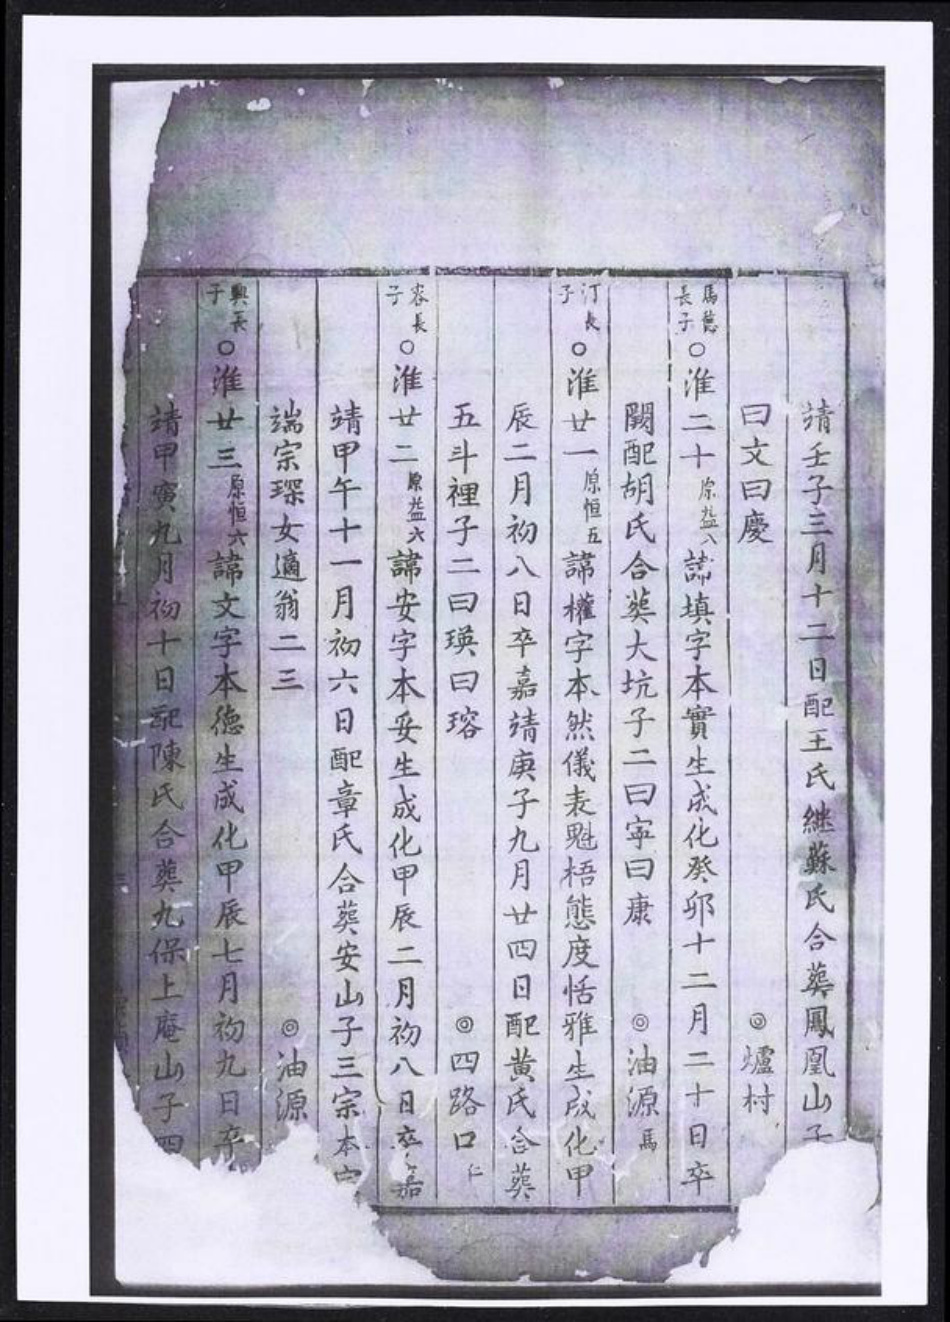 靖壬子三月十二日配王氏継蘇氏合葬鳳凰山子
曰文曰慶 ◎爐村
長子 ○淮二十原益八諱填字本實生成化癸卯十二月二十日卒
闕配胡氏合葬大坑子二曰寧曰康 ◎油源馬
汀長子 ○淮廿一原恒五諱權字本然儀表魁梧態度恬雅生成化甲
辰二月初八日卒嘉靖庚子九月廿四日配黄氏合葬
五斗裡子二曰瑛曰瑢 ◎四路口仁
容長子 ○淮廿二原益六諱安字本妥生成化甲辰二月初八日卒嘉
靖甲午十一月初六日配章氏合葬安山子三宗本宗
端宗琛女適翁二三 ◎油源
興長子 ○淮廿三原恒六諱文字本德生成化甲辰七月初九日卒
靖甲寅九月初十日配陳氏合葬九保上庵山子四